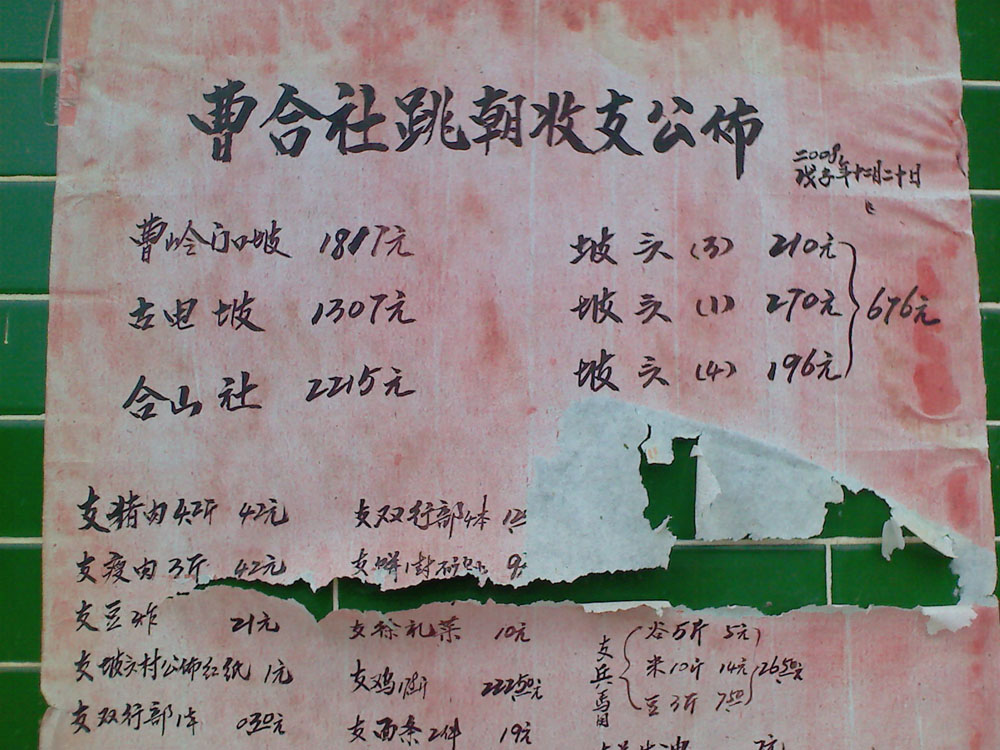 曹合社跳朝收支公佈
二〇〇8
戊子年十二月二十日
曹岭 坡 1817元
古电坡 1307元
合山社 2215元
坡头(3) 210元
坡头(1) 270元
坡头(4) 196元
676元
支猪肉 斤 42元
支瘦肉3斤 42元
支豆 21元
支坡 村公佈红纸 1元
支双行部1本 0350元
支双行部4本
支 1封
支 礼菜 10元
支鸡 22250元
支面条2件 19元
支兵马用
谷5斤 5元
米10斤 14元
豆3斤 750
2650元